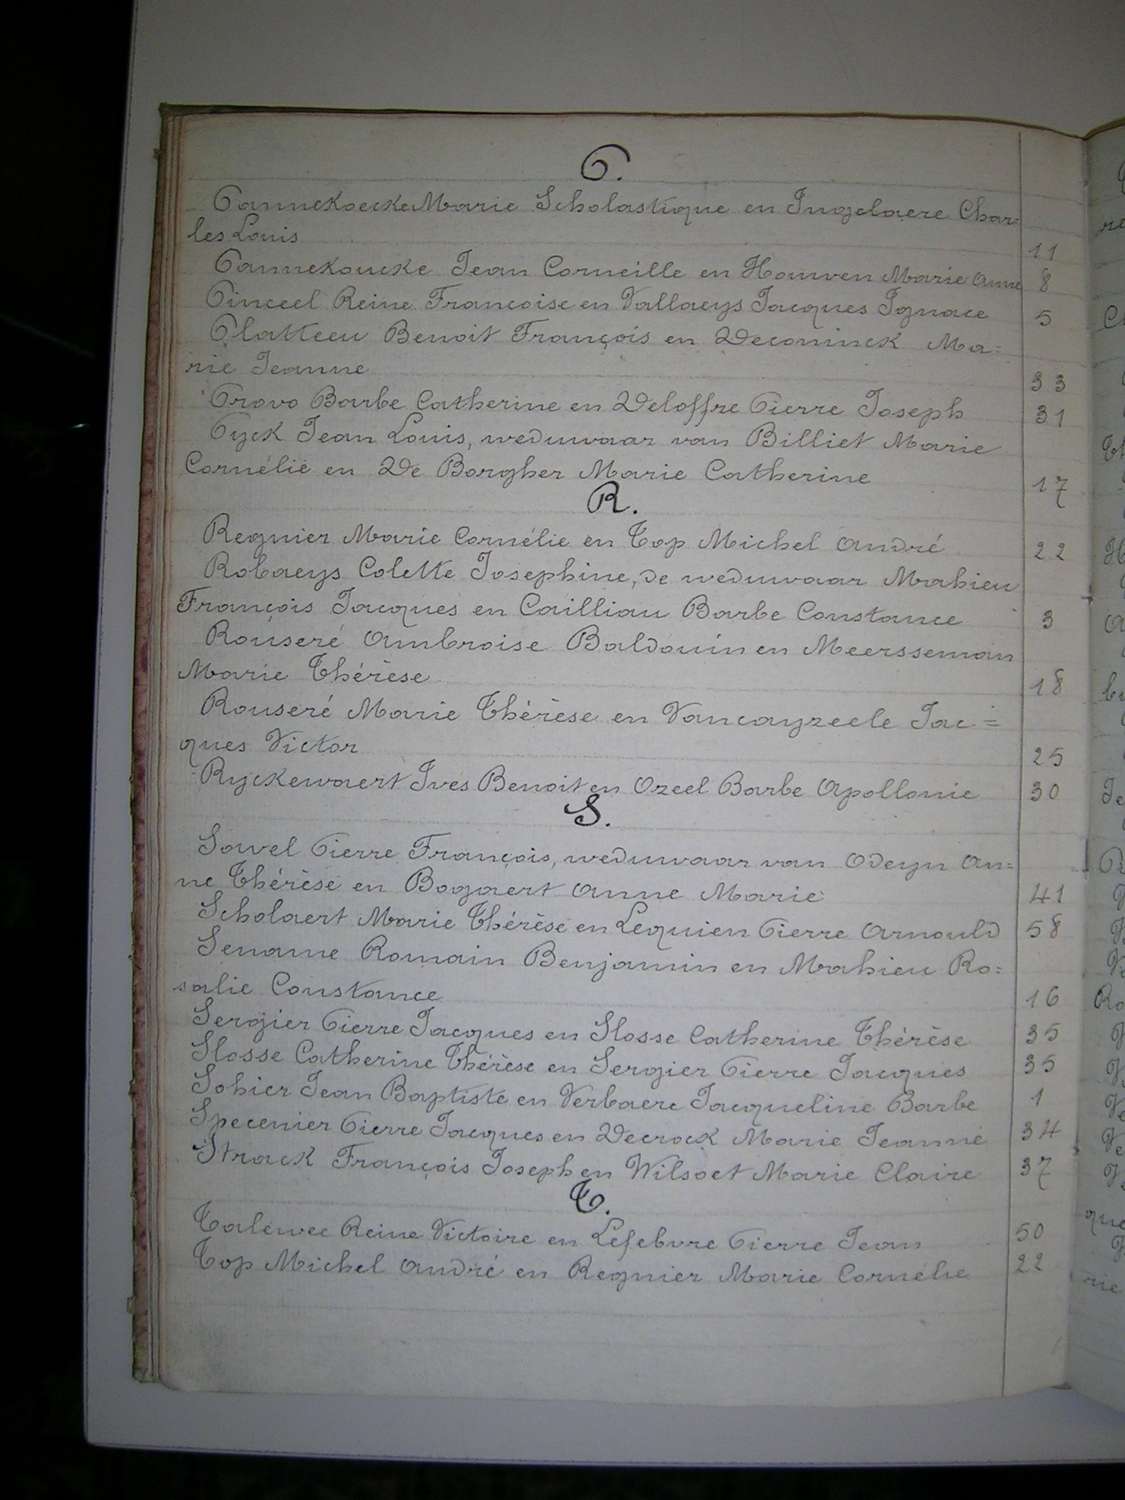 P.
Pannekoecke Marie Scholastique en Ingelaere Char=
les Louis 11
Pannekoucke Jean Corneille en Houwen Marie Anne 8
Pinceel Reine Françoise en Vallaeys Jacques Ignace 5
Platteeu Benoit François en Deconinck Ma=
rie Jeanne 33
Provo Barbe Catherine en Deloffre Pierre Joseph 31
Pyck Jean Louis, weduwaar van Billiet Marie
Cornélie en De Borgher Marie Catherine 17
R.
Regnier Marie Cornélie en Top Michel André 22
Robaeys Colette Josephine, de weduwaar Mahieu
François Jacques en Cailliau Barbe Constance 3
Rouseré Ambroise Baldouin en Meersseman
Marie Thérèse 18
Rouseré Marie Thérèse en Vancayzeele Jac=
ques Victor 25
Ryckewaert Ives Benoit en Ozeel Barbe Apollonie 30
S.
Sawel Pierre François, weduwaar van Odeyn An=
ne Thérèse en Bogaert Anne Marie 41
Scholaert Marie Thérèse en Lequien Pierre Arnould 58
Sename Romain Benjamin en Mahieu Ro=
salie Constance 16
Sergier Pierre Jacques en Slosse Catherine Thérèse 35
Slosse Catherine Thérèse en Sergier Pierre Jacques 35
Sohier Jean Baptiste en Verbaere Jacqueline Barbe 1
Specenier Pierre Jacques en Decrock Marie Jeanne 34
Strack François Joseph en Wilsoet Marie Claire 37
T.
Talewee Reine Victoire en Lefebvre Pierre Jean 50
Top Michel André en Regnier Marie Cornélie 22